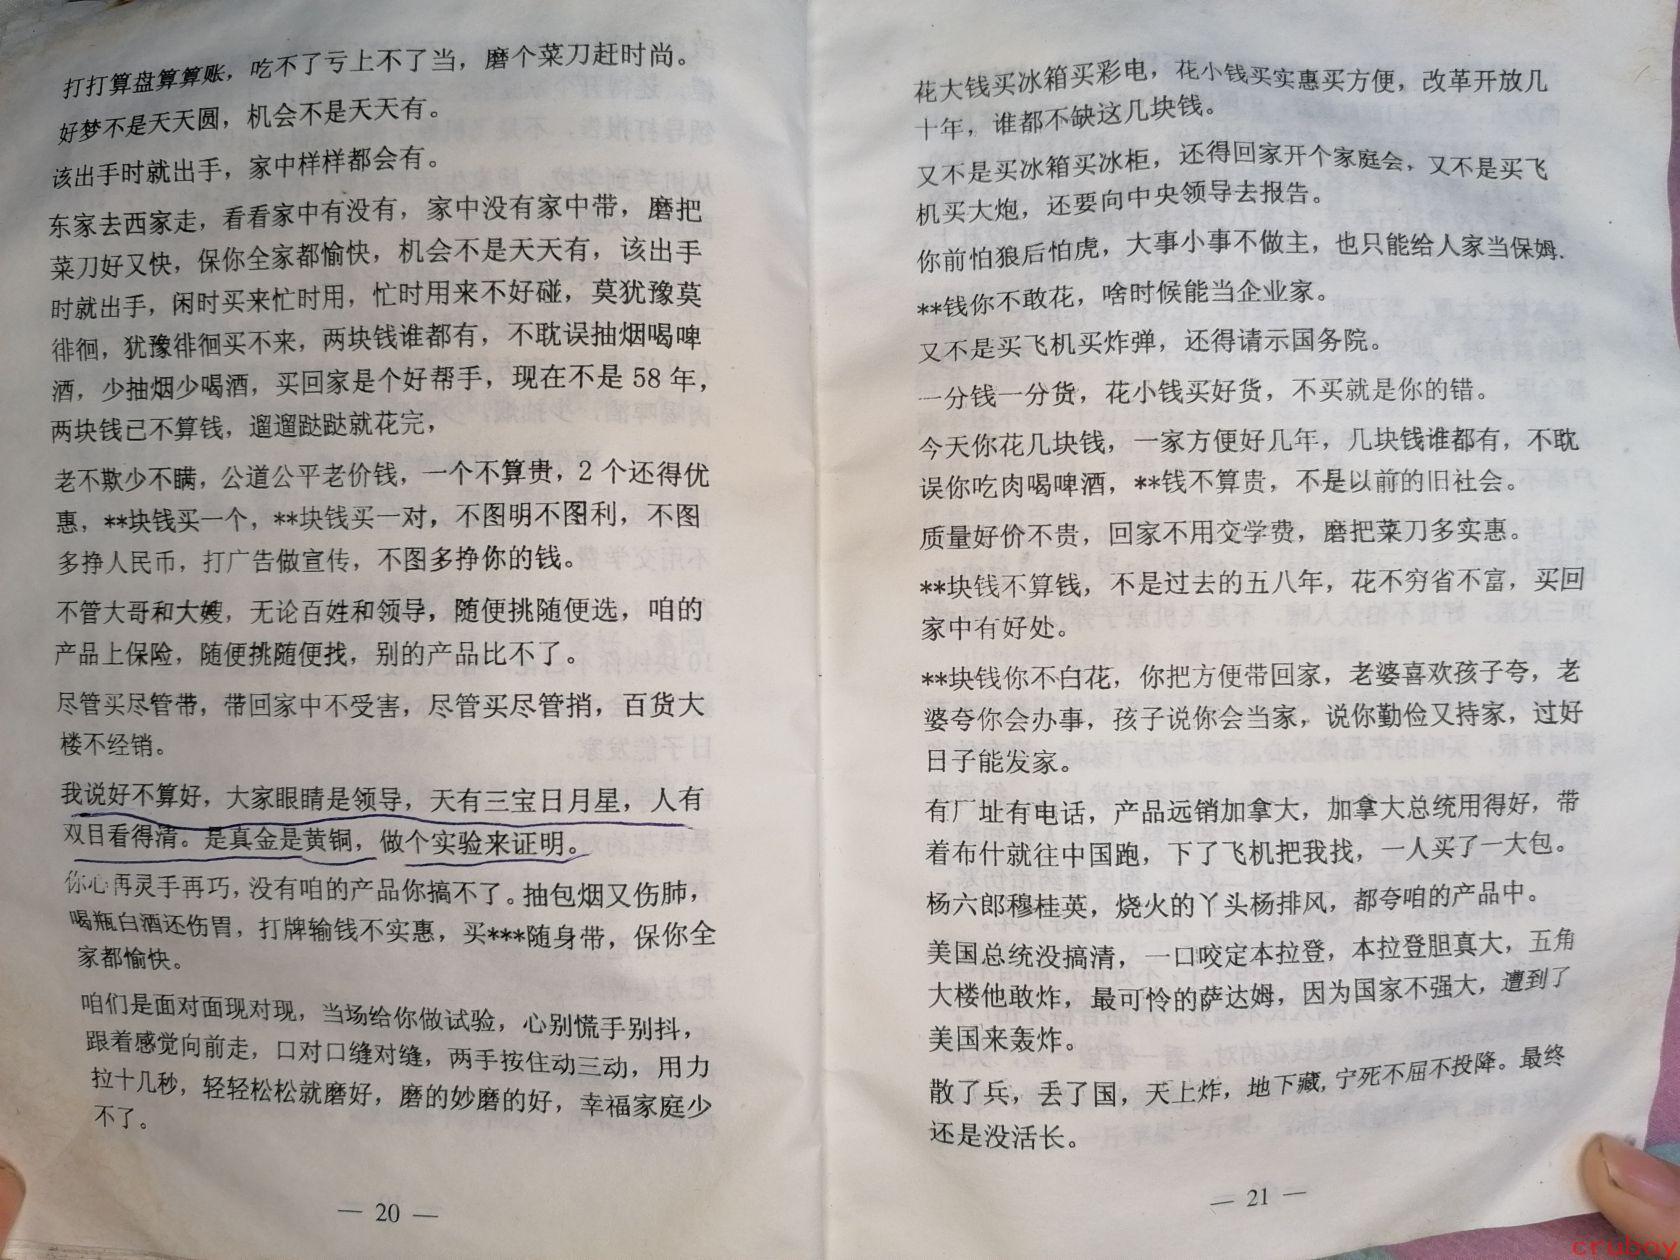 打打算盘算算账，吃不了亏上不了当，磨个菜刀赶时尚。
好梦不是天天圆，机会不是天天有。
该出手时就出手，家中样样都会有。
东家去西家走，看看家中有没有，家中没有家中带，磨把
菜刀好又快，保你全家都愉快，机会不是天天有，该出手
时就出手，闲时买来忙时用，忙时用来不好碰，莫犹豫莫
徘徊，犹豫徘徊买不来，两块钱谁都有，不耽误抽烟喝啤
酒，少抽烟少喝酒，买回家是个好帮手，现在不是 58 年，
两块钱已不算钱，遛遛跶跶就花完，
老不欺少不瞒，公道公平老价钱，一个不算贵，2 个还得优
惠，**块钱买一个，**块钱买一对，不图明不图利，不图
多挣人民币，打广告做宣传，不图多挣你的钱。
不管大哥和大嫂，无论百姓和领导，随便挑随便选，咱的
产品上保险，随便挑随便找，别的产品比不了。
尽管买尽管带，带回家中不受害，尽管买尽管捎，百货大
楼不经销。
我说好不算好，大家眼睛是领导，天有三宝日月星，人有
双目看得清。是真金是黄铜，做个实验来证明。
你心再灵手再巧，没有咱的产品你搞不了。抽包烟又伤肺，
喝瓶白酒还伤胃，打牌输钱不实惠，买***随身带，保你全
家都愉快。
咱们是面对面现对现，当场给你做试验，心别慌手别抖，
跟着感觉向前走，口对口缝对缝，两手按住动三动，用力
拉十几秒，轻轻松松就磨好，磨的妙磨的好，幸福家庭少
不了。
— 20 —
花大钱买冰箱买彩电，花小钱买实惠买方便，改革开放几
十年，谁都不缺这几块钱。
又不是买冰箱买冰柜，还得回家开个家庭会，又不是买飞
机买大炮，还要向中央领导去报告。
你前怕狼后怕虎，大事小事不做主，也只能给人家当保姆.
**钱你不敢花，啥时候能当企业家。
又不是买飞机买炸弹，还得请示国务院。
一分钱一分货，花小钱买好货，不买就是你的错。
今天你花几块钱，一家方便好几年，几块钱谁都有，不耽
误你吃肉喝啤酒，**钱不算贵，不是以前的旧社会。
质量好价不贵，回家不用交学费，磨把菜刀多实惠。
**块钱不算钱，不是过去的五八年，花不穷省不富，买回
家中有好处。
**块钱你不白花，你把方便带回家，老婆喜欢孩子夸，老
婆夸你会办事，孩子说你会当家，说你勤俭又持家，过好
日子能发家。
有厂址有电话，产品远销加拿大，加拿大总统用得好，带
着布什就往中国跑，下了飞机把我找，一人买了一大包。
杨六郎穆桂英，烧火的丫头杨排风，都夸咱的产品中。
美国总统没搞清，一口咬定本拉登，本拉登胆真大，五角
大楼他敢炸，最可怜的萨达姆，因为国家不强大，遭到了
美国来轰炸。
散了兵，丢了国，天上炸，地下藏，宁死不屈不投降。最终
还是没活长。
— 21 —
cruboy